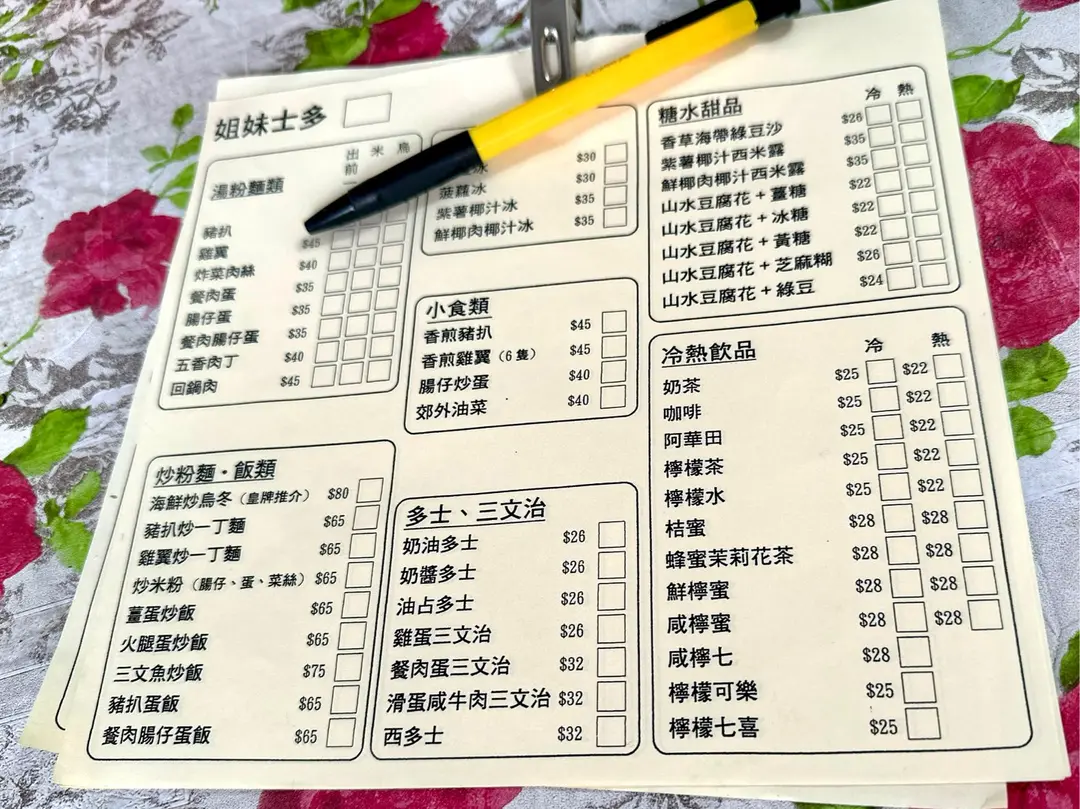 姐妹士多
出 米 烏
前
湯粉麵類
豬扒 $45
雞翼 $40
炸菜肉絲 $35
餐肉蛋 $35
腸仔蛋 $35
餐肉腸仔蛋 $40
五香肉丁 $45
回鍋肉
炒粉麵·飯類
海鮮炒烏冬（皇牌推介） $80
豬扒炒一丁麵 $65
雞翼炒一丁麵 $65
炒米粉（腸仔、蛋、菜絲） $65
薑蛋炒飯 $65
火腿蛋炒飯 $65
三文魚炒飯 $75
豬扒蛋飯 $65
餐肉腸仔蛋飯 $65
冰 $30
菠蘿冰 $30
紫薯椰汁冰 $35
鮮椰肉椰汁冰 $35
小食類
香煎豬扒 $45
香煎雞翼（6隻） $45
腸仔炒蛋 $40
郊外油菜 $40
多士、三文治
奶油多士 $26
奶醬多士 $26
油占多士 $26
雞蛋三文治 $26
餐肉蛋三文治 $32
滑蛋咸牛肉三文治 $32
西多士 $32
糖水甜品 冷 熱
香草海帶綠豆沙 $26
紫薯椰汁西米露 $35
鮮椰肉椰汁西米露 $35
山水豆腐花+薑糖 $22
山水豆腐花+冰糖 $22
山水豆腐花+黃糖 $22
山水豆腐花+芝麻糊 $26
山水豆腐花+綠豆 $24
冷熱飲品 冷 熱
奶茶 $25 $22
咖啡 $25 $22
阿華田 $25 $22
檸檬茶 $25 $22
檸檬水 $25 $22
桔蜜 $28 $28
蜂蜜茉莉花茶 $28 $28
鮮檸蜜 $28 $28
咸檸蜜 $28 $28
咸檸七 $28
檸檬可樂 $25
檸檬七喜 $25